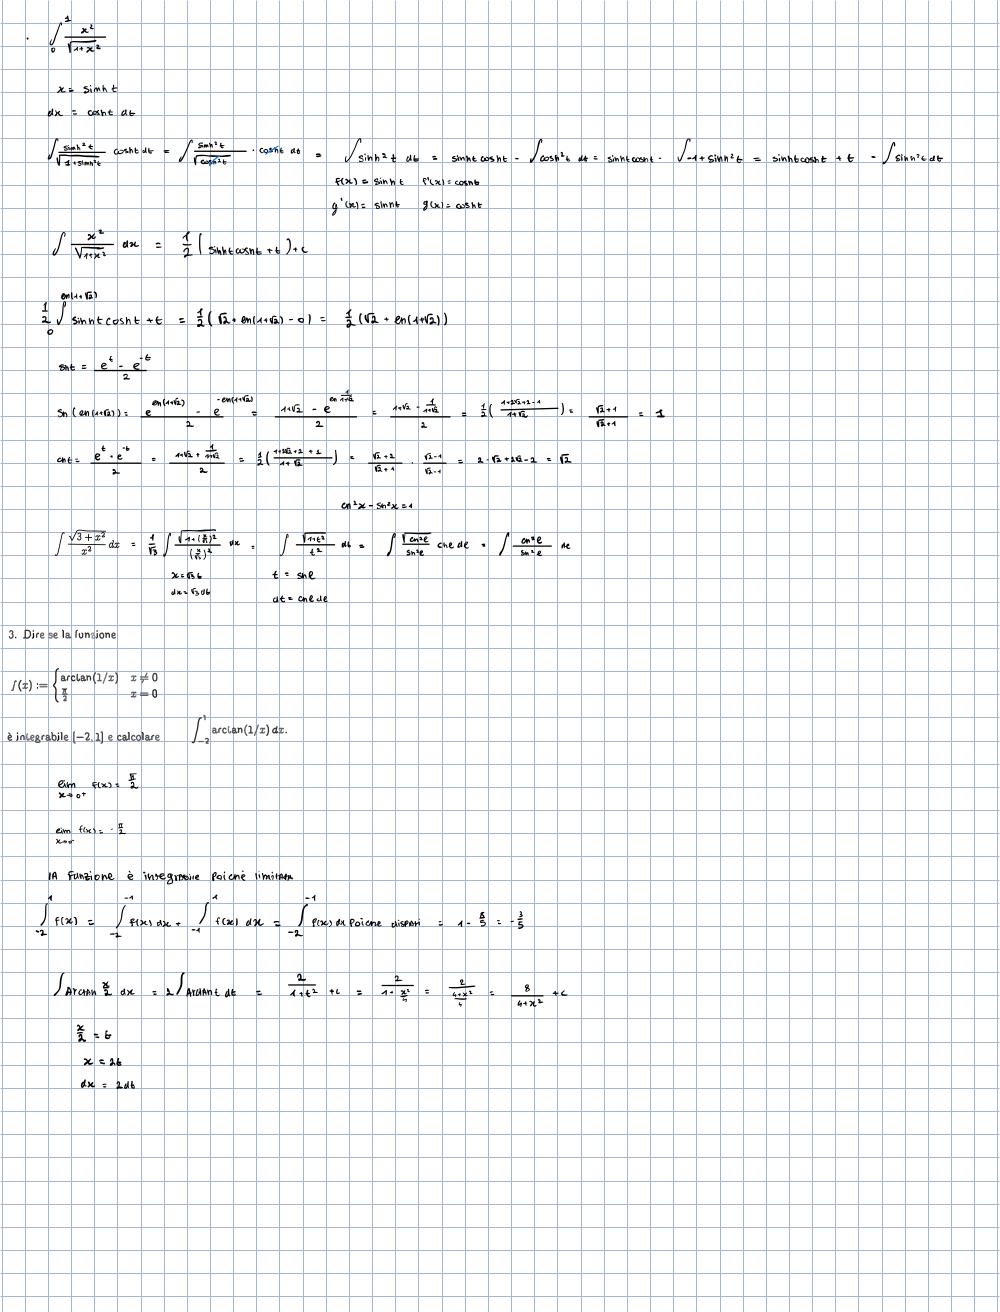 ∫₀¹ x²/√(1+x²)
x = sinh t
dx = cosht dt
∫ sinh²t/√(1+sinh²t) cosht dt = ∫ sinh²t/√(cosh²t) · cosht dt = ∫ sinh²t dt = sinht cosht - ∫ cosh²t dt = sinht cosht - ∫ -1+sinh²t = sinht cosht + t - ∫ sinh²t dt
f(x) = sinh t f'(x) = cosht
g'(x) = sinht g(x) = cosht
∫ x²/√(1+x²) dx = 1/2 ( sinht cosht + t ) + c
1/2 ∫₀^ln(1+√2) sinht cosht + t = 1/2 ( √2 + ln(1+√2) - 0 ) = 1/2 (√2 + ln(1+√2))
sht = (e^t - e^-t)/2
Sh ( ln(1+√2)) = (e^ln(1+√2) - e^-ln(1+√2))/2 = (1+√2 - e^ln 1/(1+√2))/2 = (1+√2 - 1/(1+√2))/2 = 1/2 ( (1+2√2+2-1)/(1+√2) ) = (√2+1)/(√2+1) = 1
cht = (e^t + e^-t)/2 = (1+√2 + 1/(1+√2))/2 = 1/2 ( (1+2√2+2+1)/(1+√2) ) = (√2+2)/(√2+1) · (√2-1)/(√2-1) = 2-√2+2√2-2 = √2
ch²x - sh²x = 1
∫ √(3+x²)/x² dx = 1/√3 ∫ √(1+(x/√3)²)/(x/√3)² dx = ∫ √(1+t²)/t² dt = ∫ √(ch²l)/sh²l chl dl = ∫ ch²l/sh²l dl
x = √3 t t = shl
dx = √3 dt dt = chl dl
3. Dire se la funzione
f(x) := { arctan(1/x) x ≠ 0
π/2 x = 0
è integrabile [−2, 1] e calcolare ∫₋₂¹ arctan(1/x) dx.
lim x→0⁺ f(x) = π/2
lim x→0⁻ f(x) = -π/2
LA funzione è integrabile poiché limitata
∫₋₂¹ f(x) = ∫₋₂⁻¹ f(x) dx + ∫₋₁¹ f(x) dx = ∫₋₂⁻¹ f(x) dx poiché dispari = 1 - 8/5 = -3/5
∫ Arctan x/2 dx = 2 ∫ Arctant dt = 2/(1+t²) + c = 2/(1+x²/4) = 2/((4+x²)/4) = 8/(4+x²) + c
x/2 = t
x = 2t
dx = 2dt